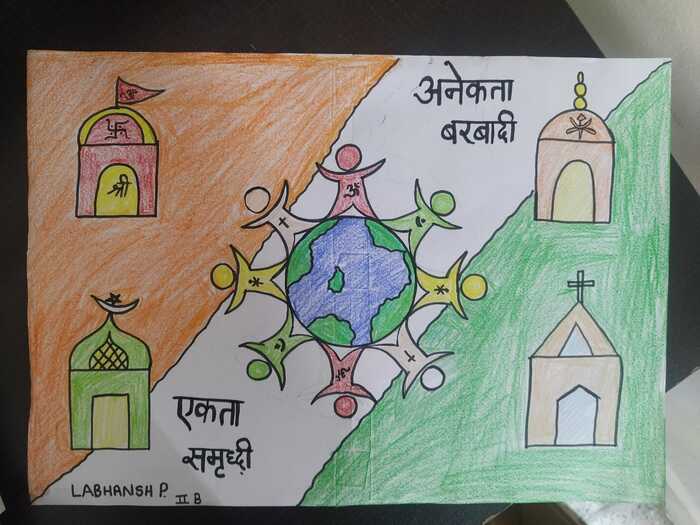 अनेकता
बरबादी
श्री
ॐ
एकता
समृध्दी
LABHANSH P.
II B